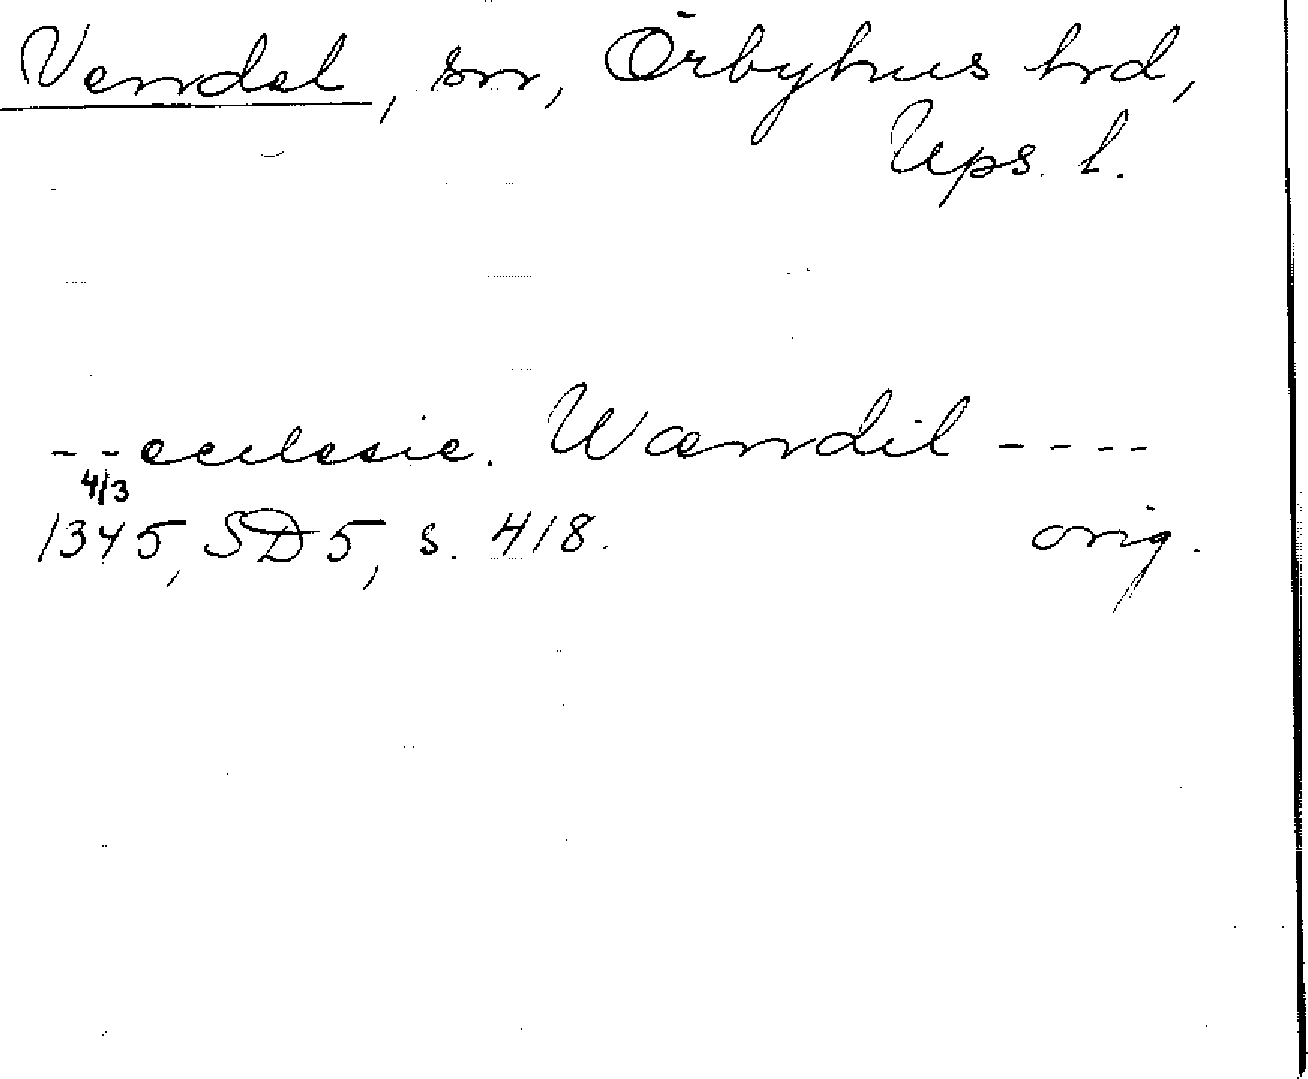 Vendel, sn, Örbyhus hrd,
Ups. l.
--ecclesie. Wændil ----
4/3
1345, SD 5, s. 418. orig.